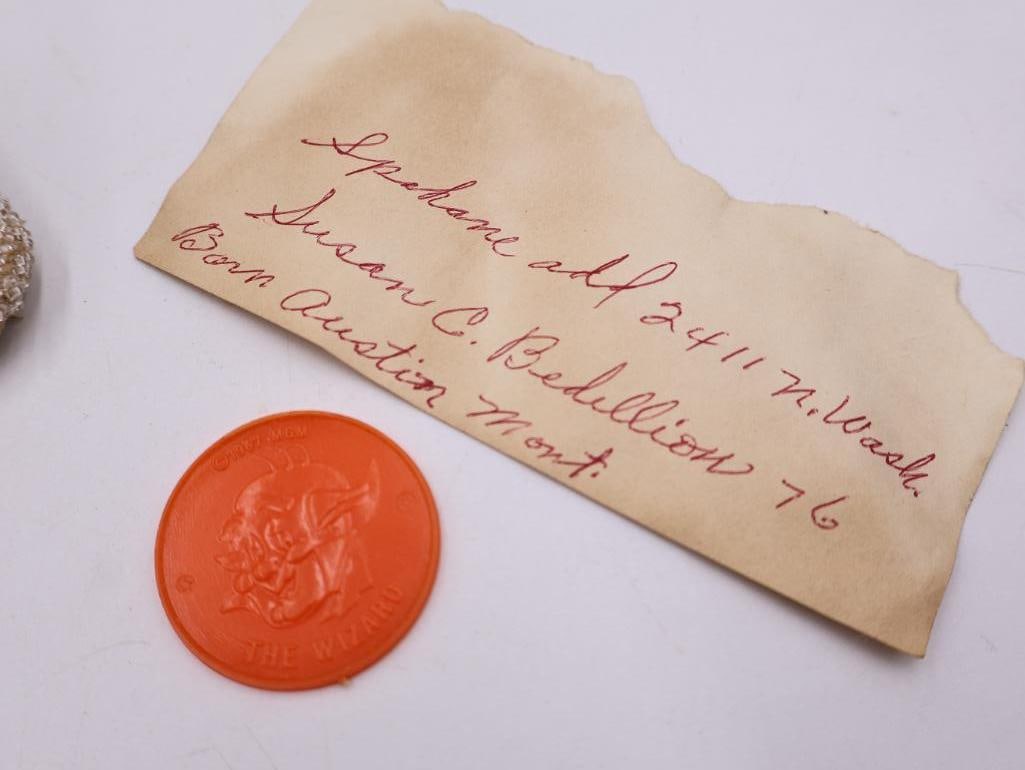 Spokane add 2411 N. Wash.
Susan C. Bedellion 76
Born Austin Mont.
© 1967 M.G.M
THE WIZARD